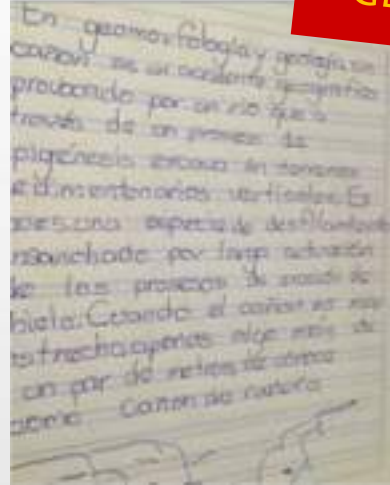 En geomorfología y geología un
cañón es un accidente geográfico
provocando por un río que a
través de un proceso de
epigénesis excava en terrenos
sedimentarios verticales Es
pues una especie de desfiladero
ensanchado por larga actuación
de los procesos de erosión de
hielo. Cuando el cañón es muy
estrecho apenas algo más de
un par de metros de
como cañon de ranura